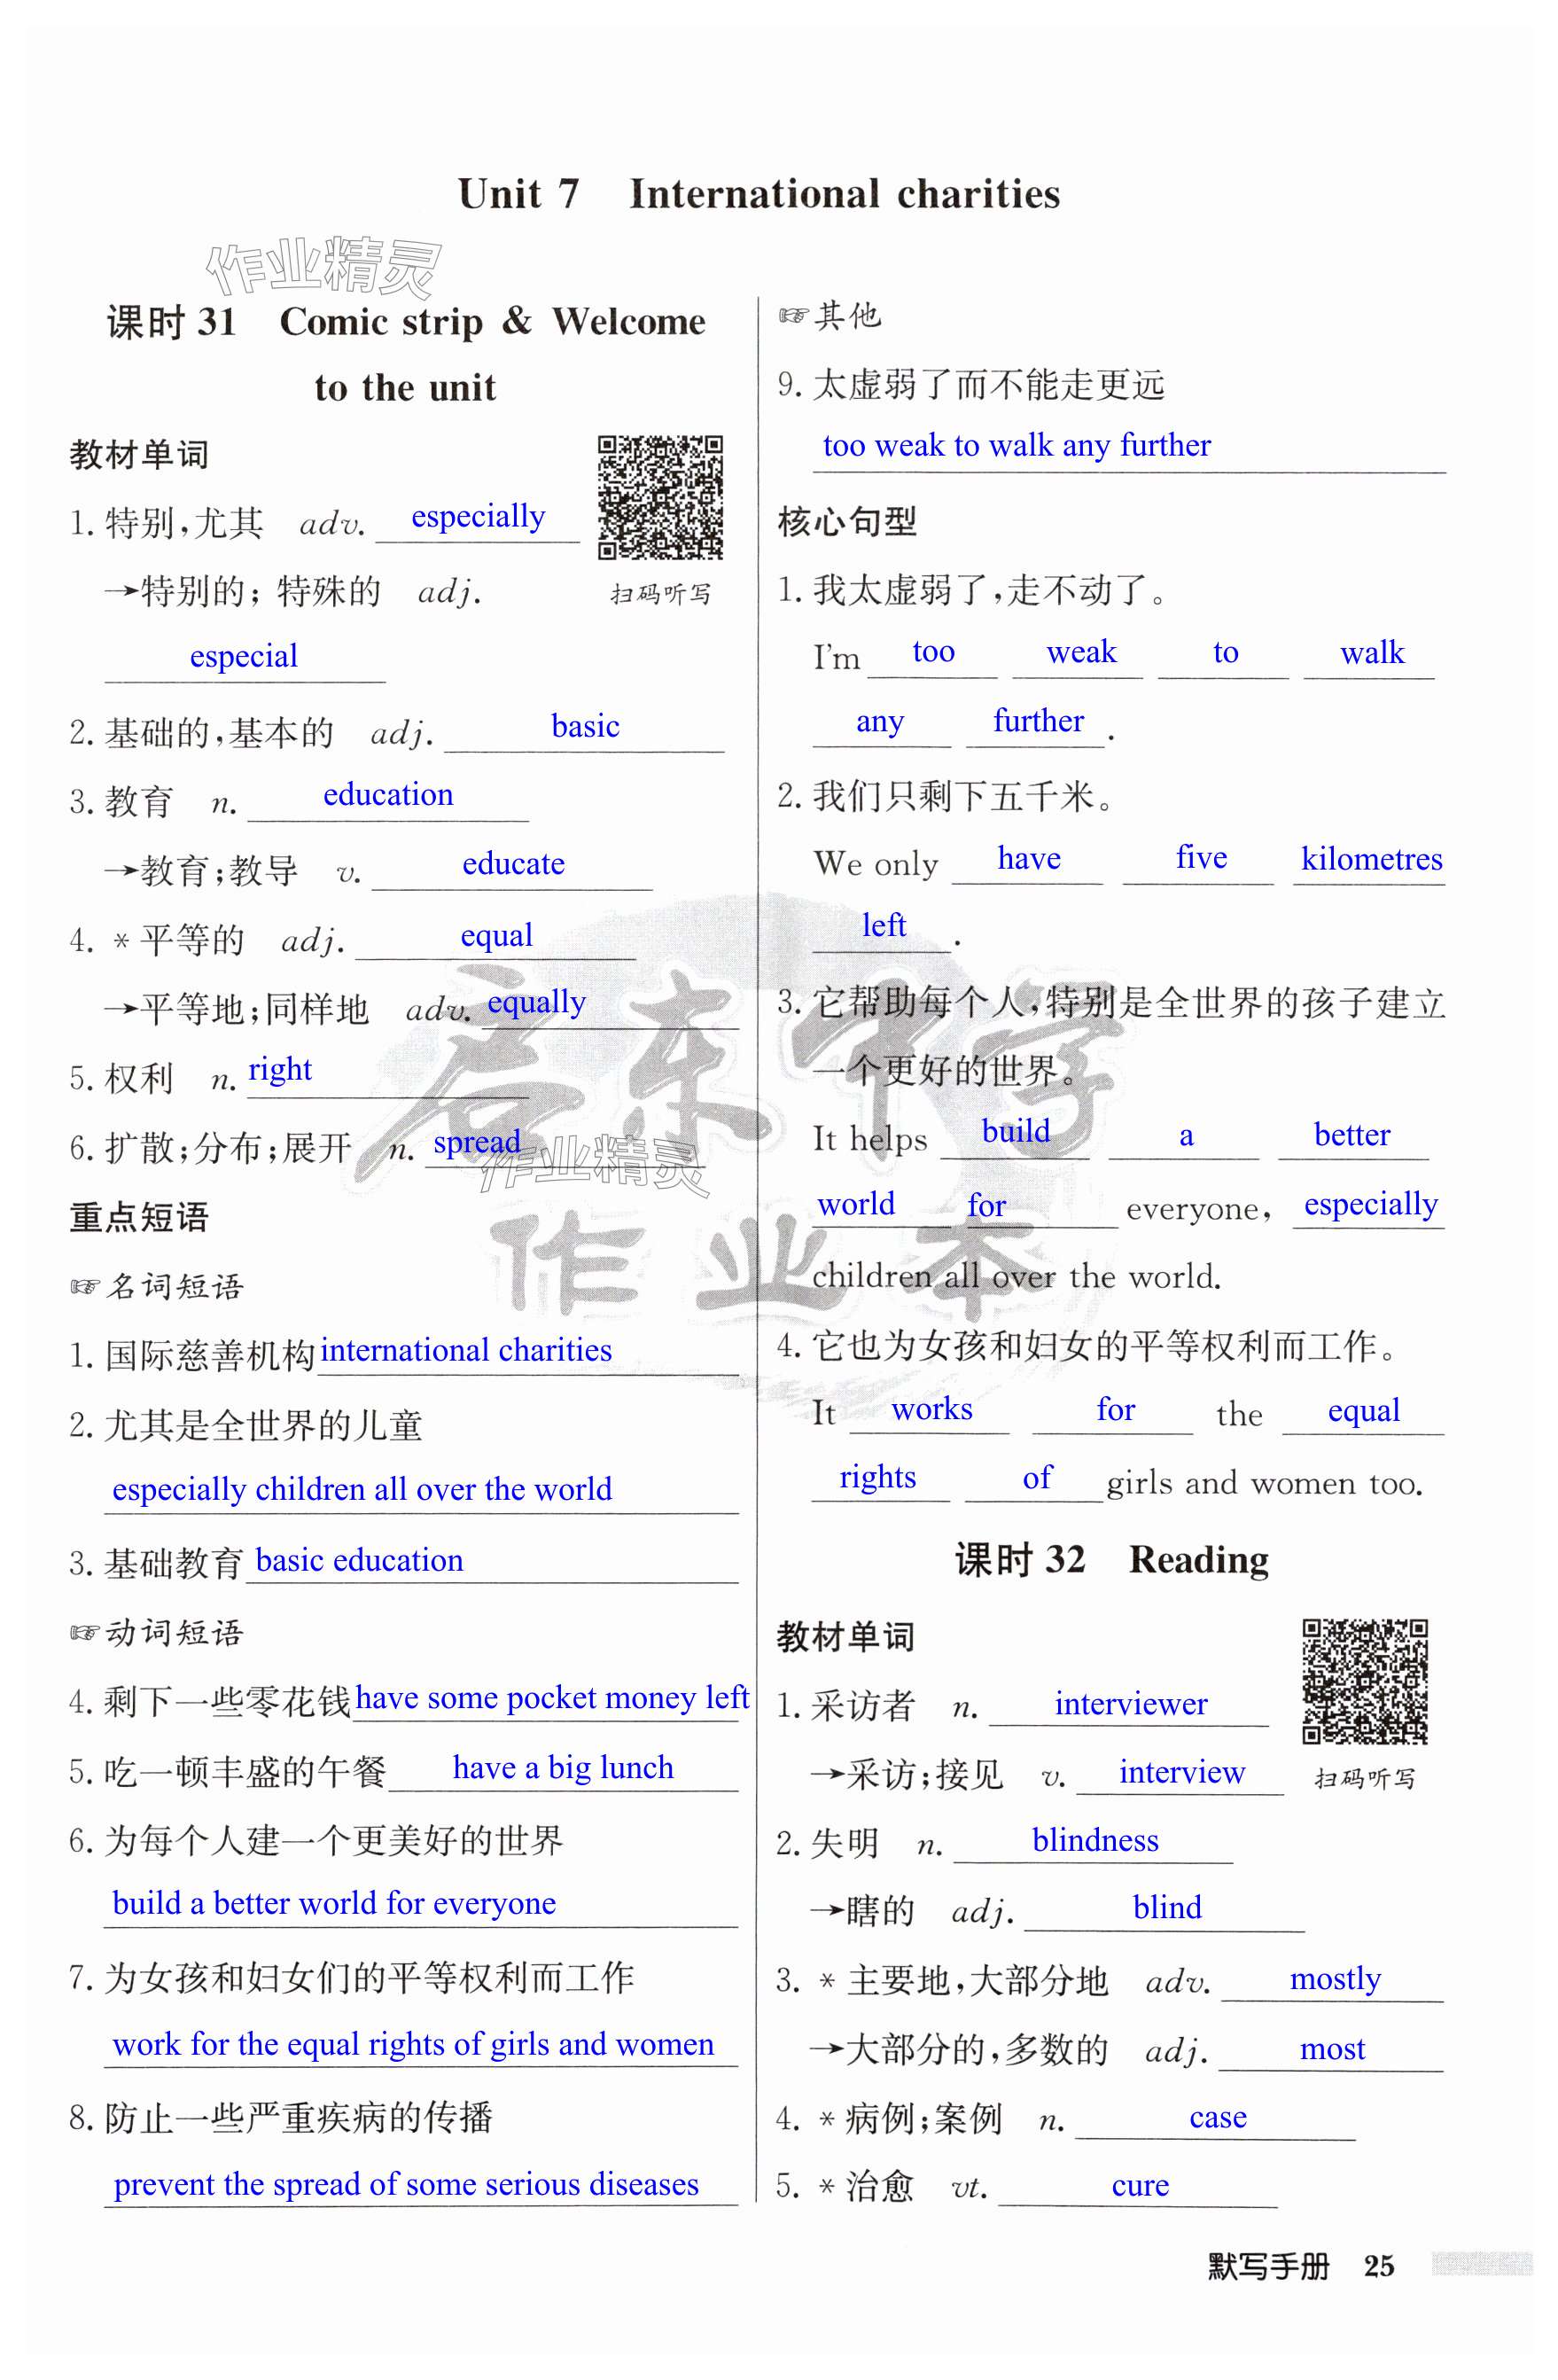 Unit 7 International charities
作业精灵
课时 31 Comic strip & Welcome
to the unit
教材单词
1. 特别,尤其 adv. especially
→特别的; 特殊的 adj.
扫码听写
especial
2. 基础的,基本的 adj. basic
3. 教育 n. education
→教育;教导 v. educate
4. *平等的 adj. equal
→平等地;同样地 adv. equally
5. 权利 n. right
6. 扩散;分布;展开 n. spread
重点短语
☞名词短语
1. 国际慈善机构 international charities
2. 尤其是全世界的儿童
especially children all over the world
3. 基础教育 basic education
☞动词短语
4. 剩下一些零花钱 have some pocket money left
5. 吃一顿丰盛的午餐 have a big lunch
6. 为每个人建一个更美好的世界
build a better world for everyone
7. 为女孩和妇女们的平等权利而工作
work for the equal rights of girls and women
8. 防止一些严重疾病的传播
prevent the spread of some serious diseases
☞其他
9. 太虚弱了而不能走更远
too weak to walk any further
核心句型
1. 我太虚弱了,走不动了。
I'm too weak to walk
any further.
2. 我们只剩下五千米。
We only have five kilometres
left.
3. 它帮助每个人,特别是全世界的孩子建立
一个更好的世界。
It helps build a better
world for everyone, especially
children all over the world.
4. 它也为女孩和妇女的平等权利而工作。
It works for the equal
rights of girls and women too.
课时 32 Reading
教材单词
1. 采访者 n. interviewer
→采访;接见 v. interview
扫码听写
2. 失明 n. blindness
→瞎的 adj. blind
3. *主要地,大部分地 adv. mostly
→大部分的,多数的 adj. most
4. *病例;案例 n. case
5. *治愈 vt. cure
启东中学
作业本
作业精灵
默写手册 25